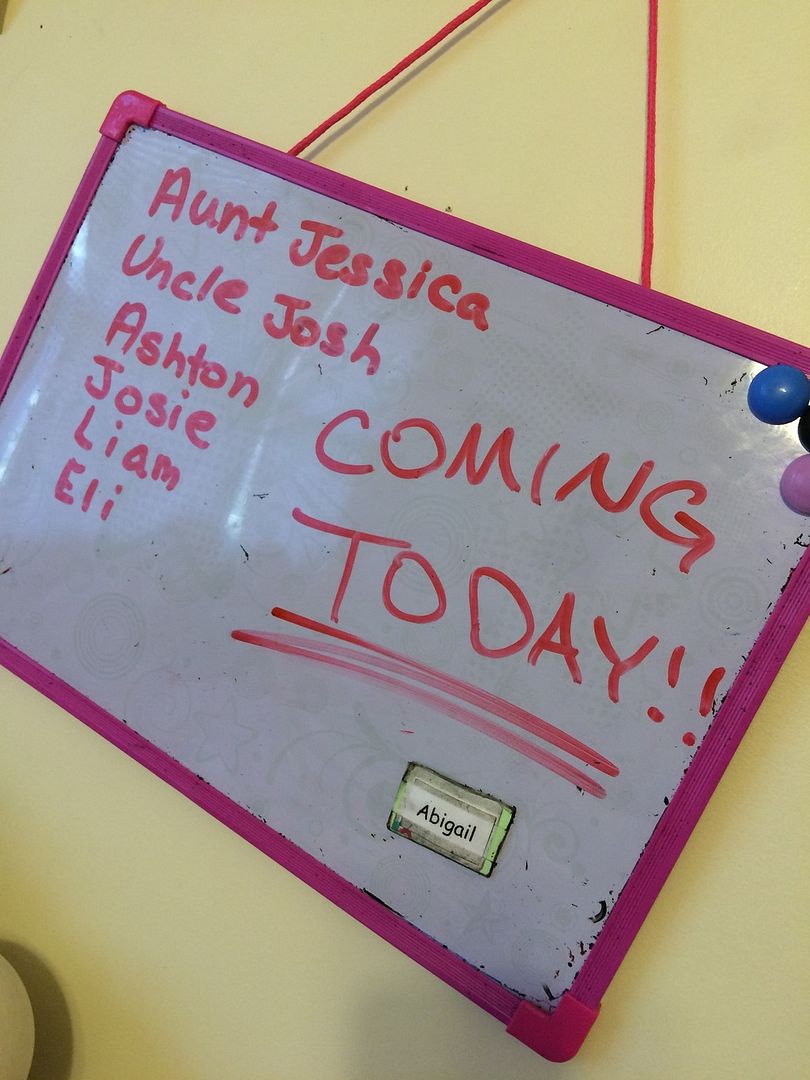 Aunt Jessica
Uncle Josh
Ashton
Josie
Liam
Eli
COMING
TODAY!!
Abigail